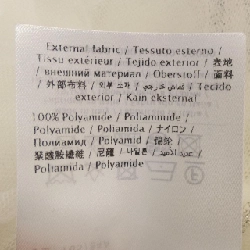 External fabric / Tessuto esterno /
Tissu extérieur / Tejido exterior / 表地
/ внешний материал / Oberstoff / 面料
/ 外部布料 / 외부 소재 / قماش خارجي / Tecido
exterior / Kain eksternal
100% Polyamide / Poliammide /
Polyamide / Poliamida / ナイロン /
Полиамид / Polyamid / 锦纶 /
聚醯胺纖維 / 尼龍 / 나일론 /
Poliamida / Polyamid